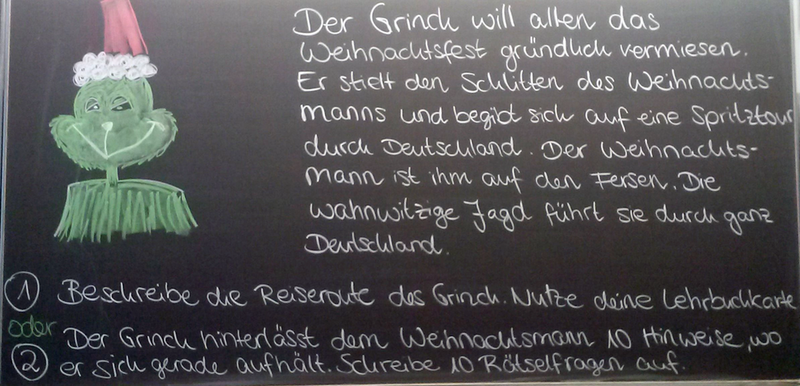 Der Grinch will allen das
Weihnachtsfest gründlich vermiesen.
Er stielt den Schlitten des Weihnachts-
manns und begibt sich auf eine Spritztour
durch Deutschland. Der Weihnachts-
mann ist ihm auf den Fersen. Die
wahnwitzige Jagd führt sie durch ganz
Deutschland.
① Beschreibe die Reiseroute des Grinch. Nutze deine Lehrbuchkarte
oder
Der Grinch hinterlässt dem Weihnachtsmann 10 Hinweise, wo
② er sich gerade aufhält. Schreibe 10 Rätselfragen auf.